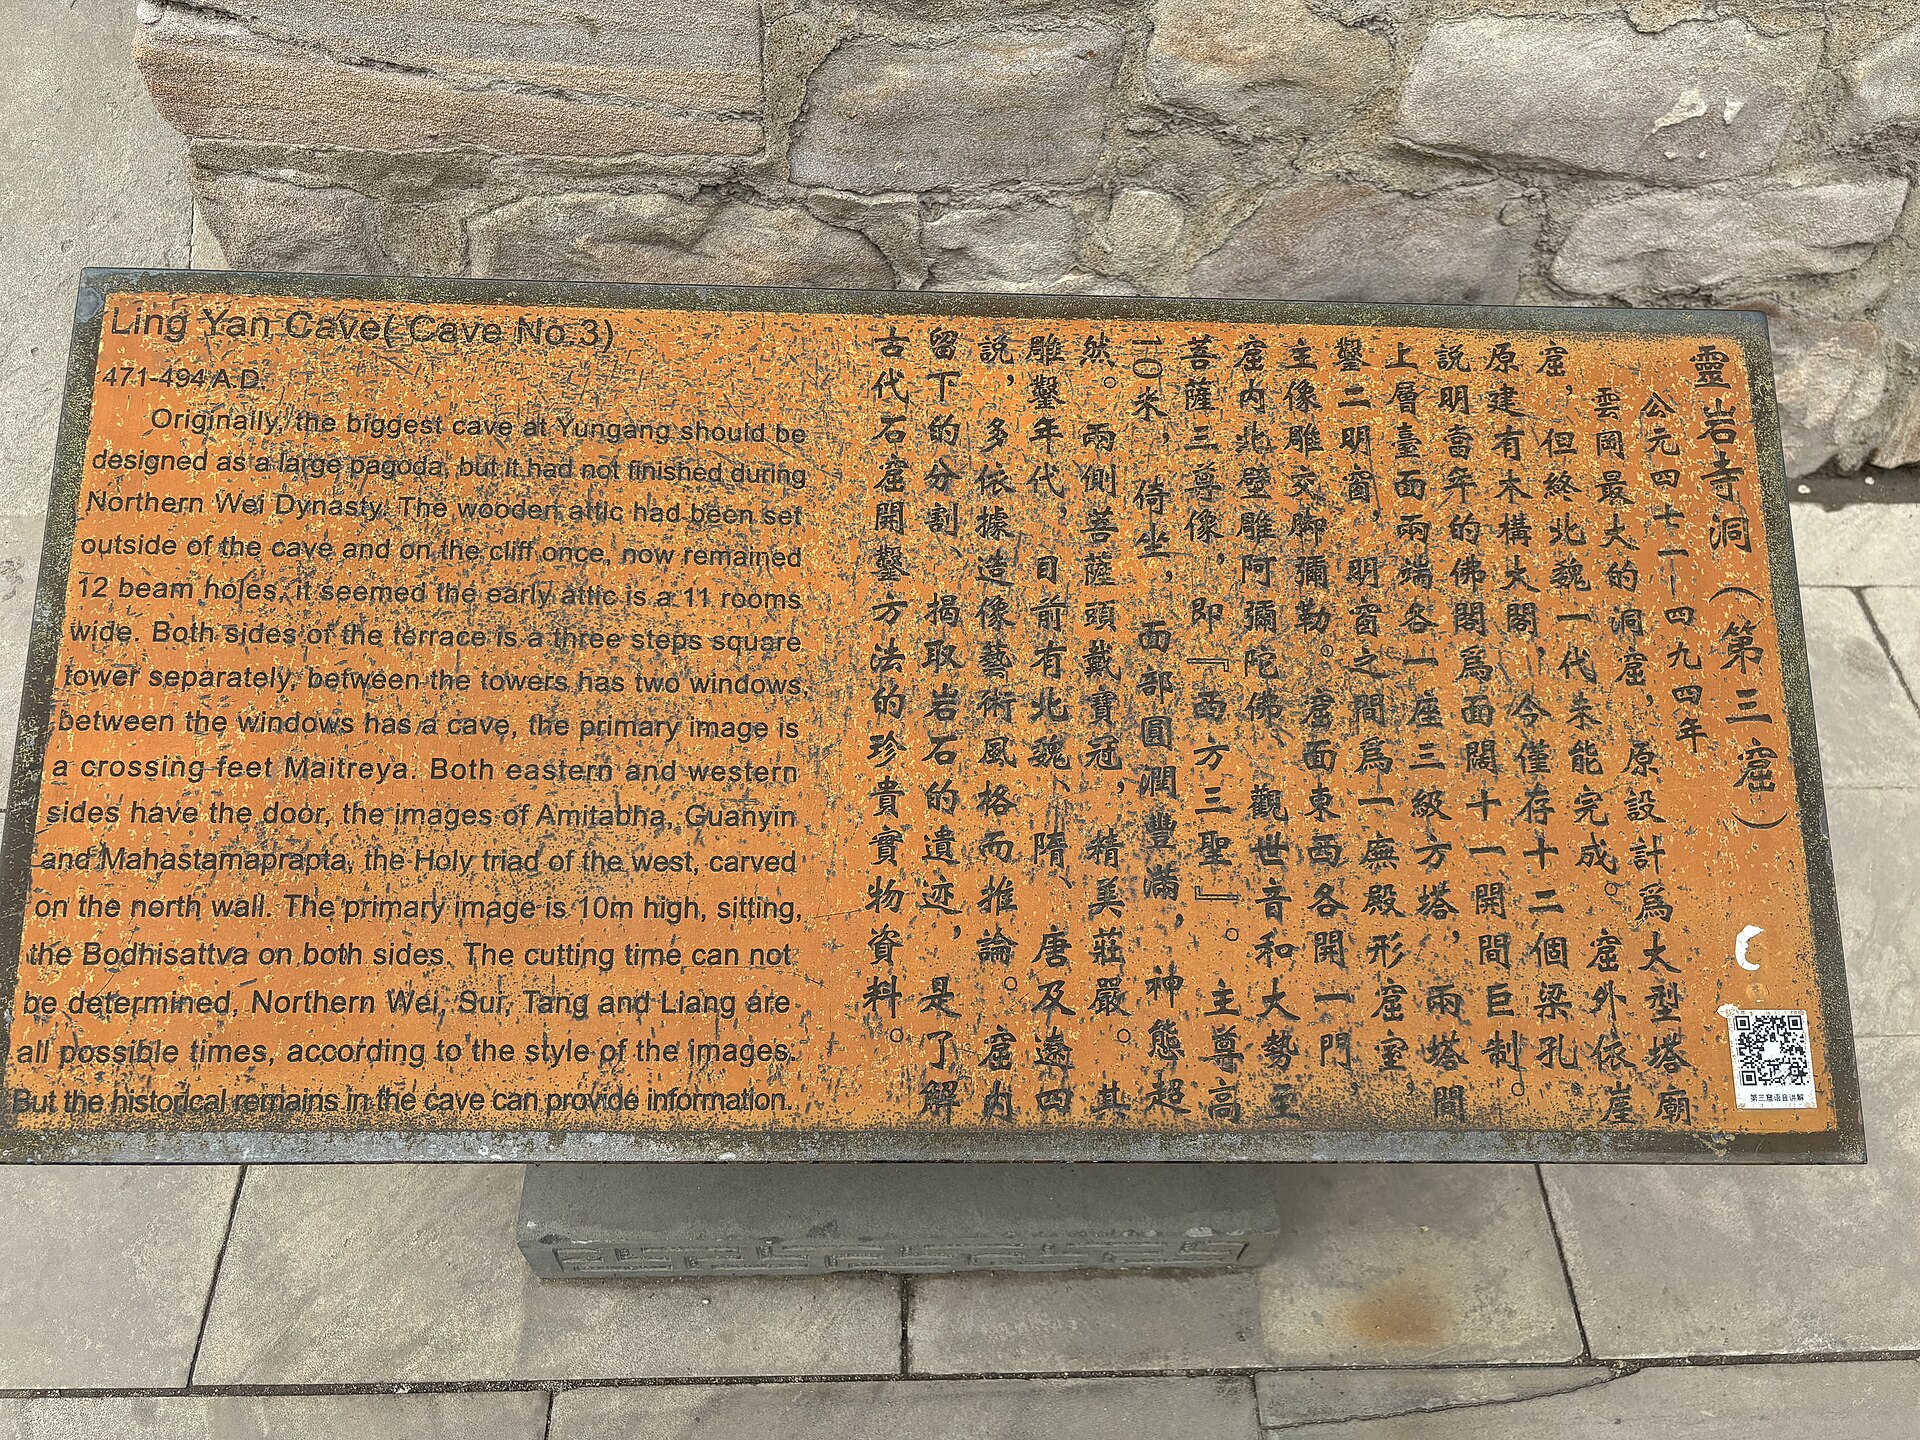 Ling Yan Cave( Cave No.3)
471-494 A.D.
Originally, the biggest cave at Yungang should be
designed as a large pagoda, but it had not finished during
Northern Wei Dynasty. The wooden attic had been set
outside of the cave and on the cliff once, now remained
12 beam holes, it seemed the early attic is a 11 rooms
wide. Both sides of the terrace is a three steps square
tower separately, between the towers has two windows,
between the windows has a cave, the primary image is
a crossing-feet Maitreya. Both eastern and western
sides have the door, the images of Amitabha, Guanyin
and Mahastamaprapta, the Holy triad of the west, carved
on the north wall. The primary image is 10m high, sitting,
the Bodhisattva on both sides. The cutting time can not
be determined, Northern Wei, Sui, Tang and Liang are
all possible times, according to the style of the images.
But the historical remains in the cave can provide information.
靈岩寺洞（第三窟）
公元四七一—四九四年
雲岡最大的洞窟，原設計爲大型塔廟
窟，但終北魏一代未能完成。窟外依崖
原建有木構大閣，今僅存十二個梁孔，
說明當年的佛閣爲面闊十一開間巨制。
上層臺面兩端各一座三級方塔，兩塔間
鑿二明窗，明窗之間爲一廡殿形窟室，
主像雕交脚彌勒。窟面東西各開一門，
窟内北壁雕阿彌陀佛、觀世音和大勢至
菩薩三尊像，即『西方三聖』。主尊高
10米，倚坐，面部圓潤豐滿，神態超
然。兩側菩薩頭戴寶冠，精美莊嚴。其
雕鑿年代，目前有北魏、隋、唐及遼四
說，多依據造像藝術風格而推論。窟内
留下的分割、揭取岩石的遺迹，是了解
古代石窟開鑿方法的珍貴實物資料。
第三窟语音讲解